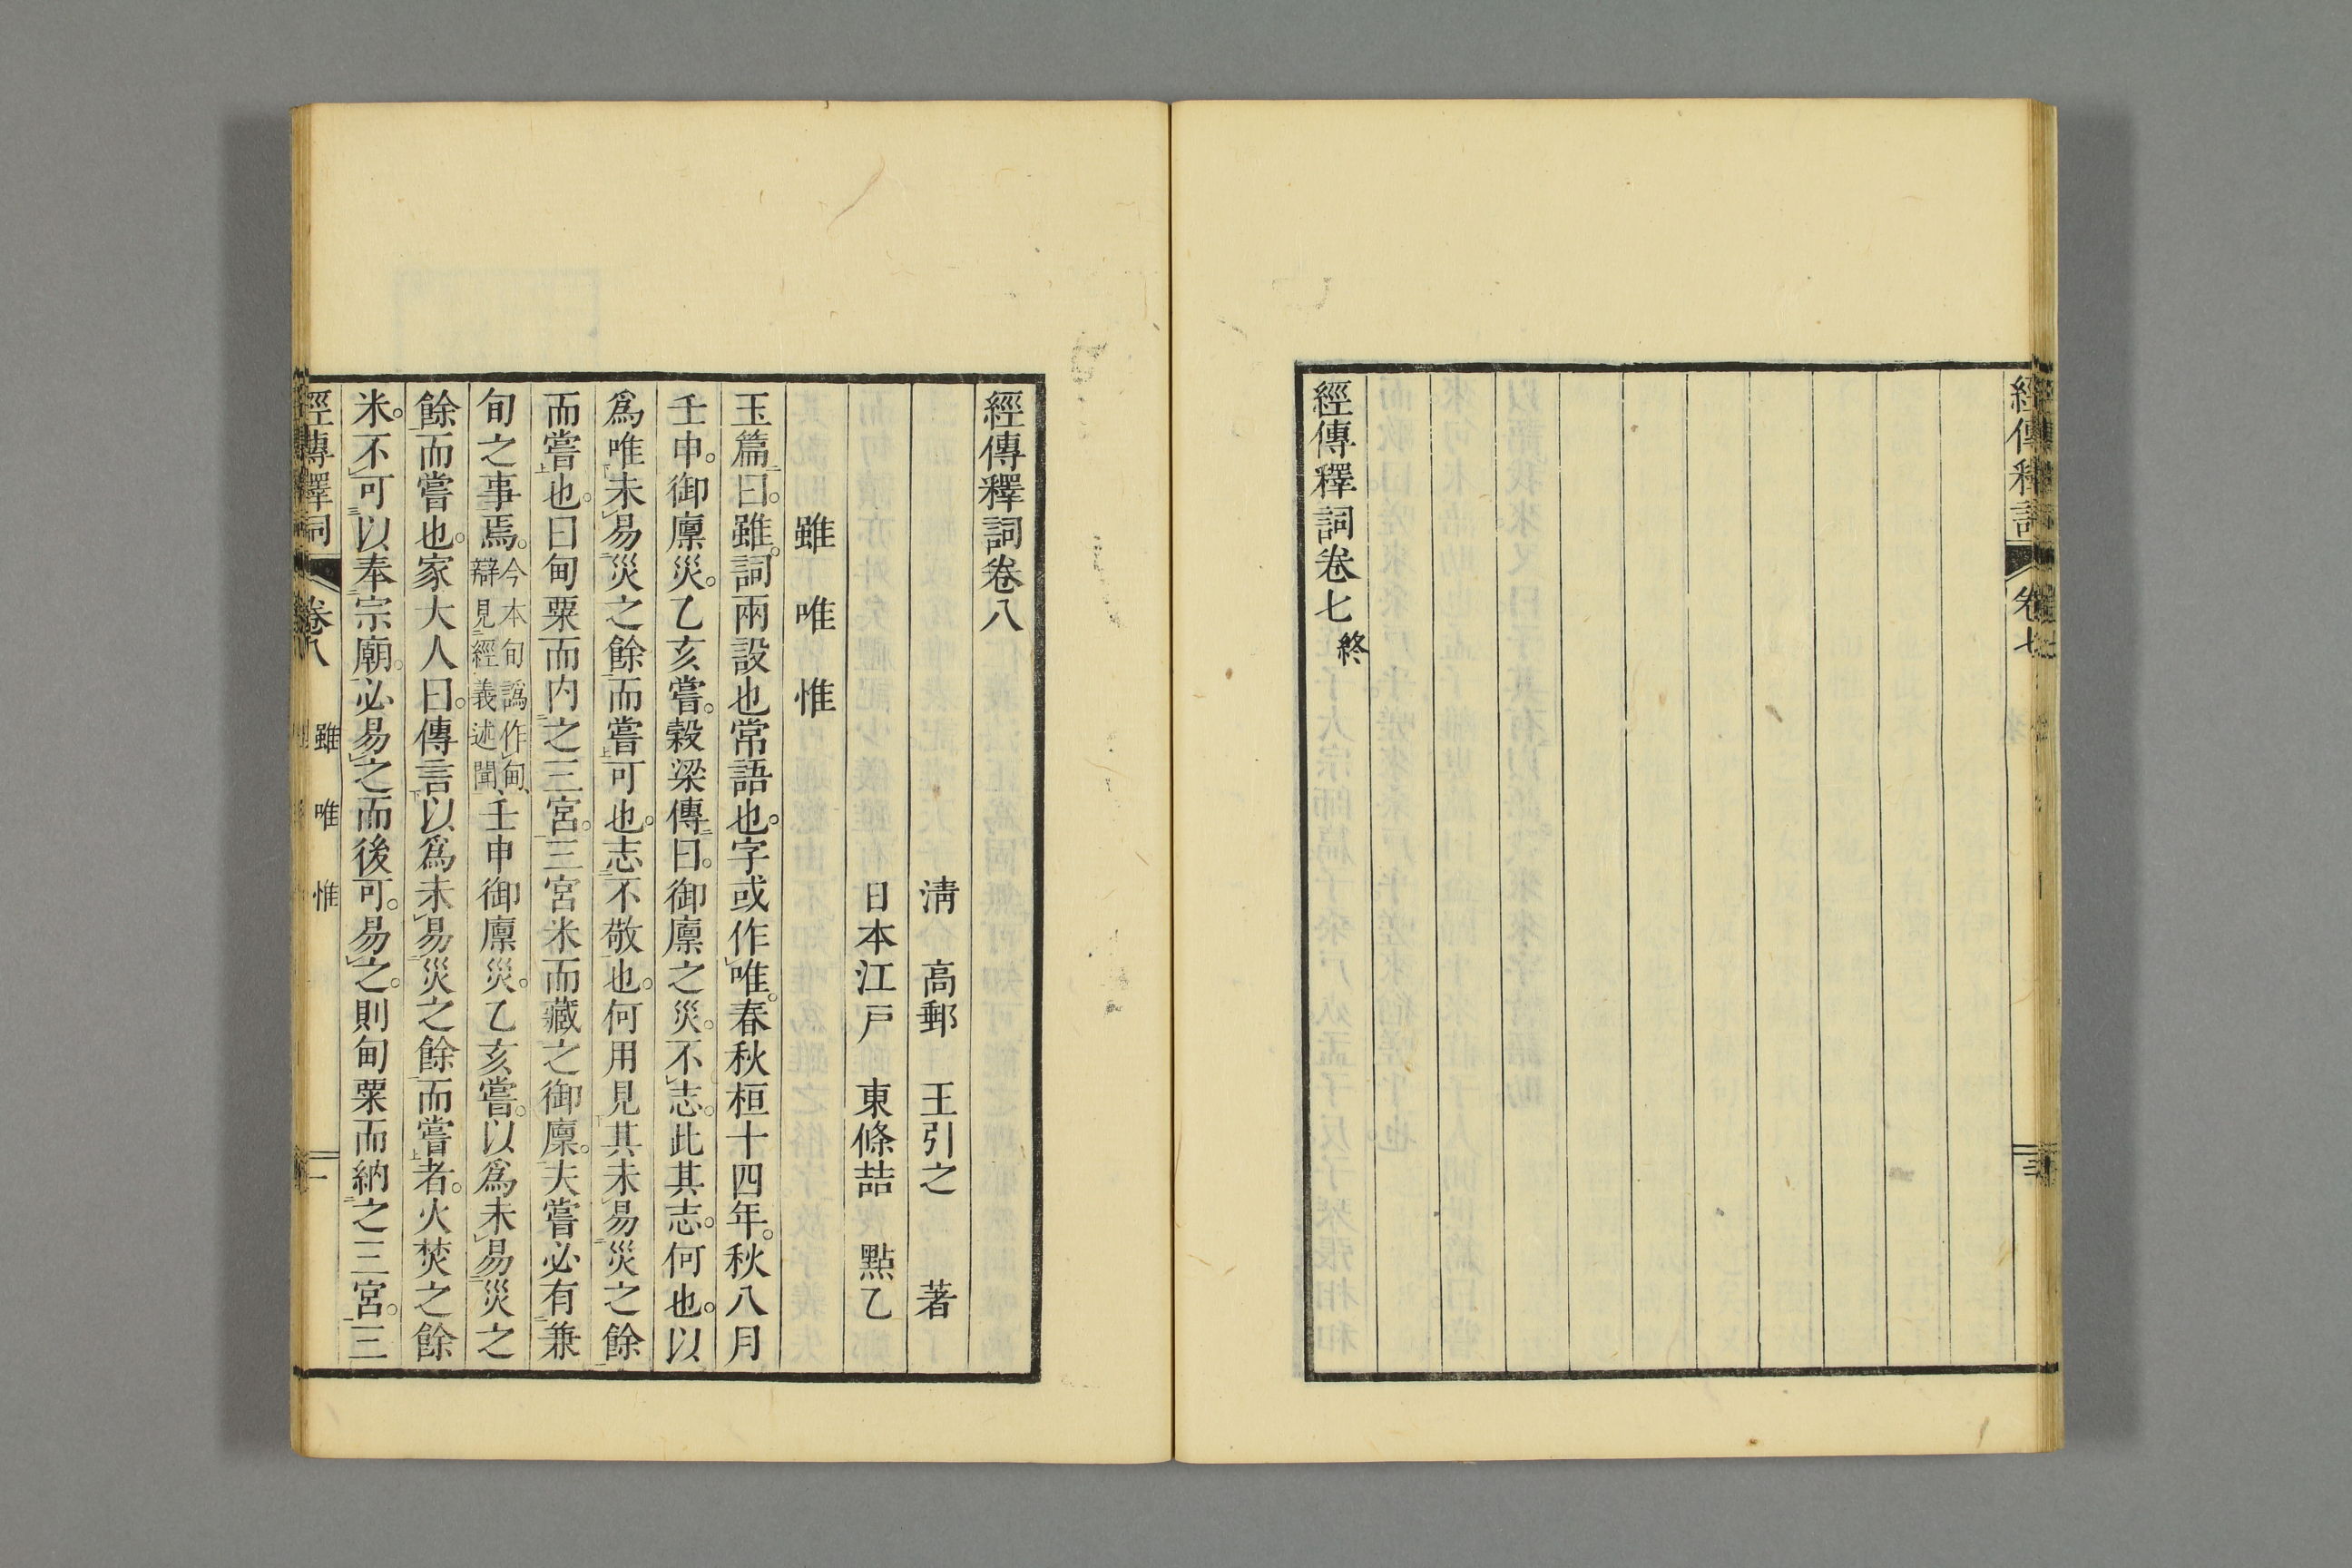 經傳釋詞 卷七
經傳釋詞卷七 終
經傳釋詞卷八
清 高郵 王引之 著
日本江戸 東條喆 點乙
雖 唯 惟
玉篇曰。雖。詞兩設也常語也。字或作唯。春秋桓十四年。秋八月
壬申。御廩災。乙亥嘗。穀梁傳曰。御廩之災。不志。此其志。何也。以
爲唯未易災之餘而嘗可也。志不敬也。何用見其未易災之餘
而嘗也。曰甸粟而内之三宮。三宮米而藏之御廩。夫嘗必有兼
旬之事焉。今本旬譌作甸、辯見經義述聞、壬申御廩災。乙亥嘗。以爲未易災之
餘而嘗也。家大人曰。傳言以爲未易災之餘而嘗者。火焚之餘
米。不可以奉宗廟。必易之而後可。易之。則甸粟而納之三宮。三
經傳釋詞 卷八 雖 唯 惟 一